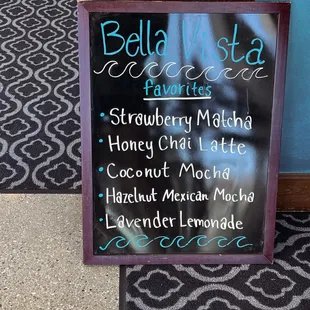 Bella Vista
favorites
• Strawberry Matcha
• Honey Chai Latte
• Coconut Mocha
• Hazelnut Mexican Mocha
• Lavender Lemonade